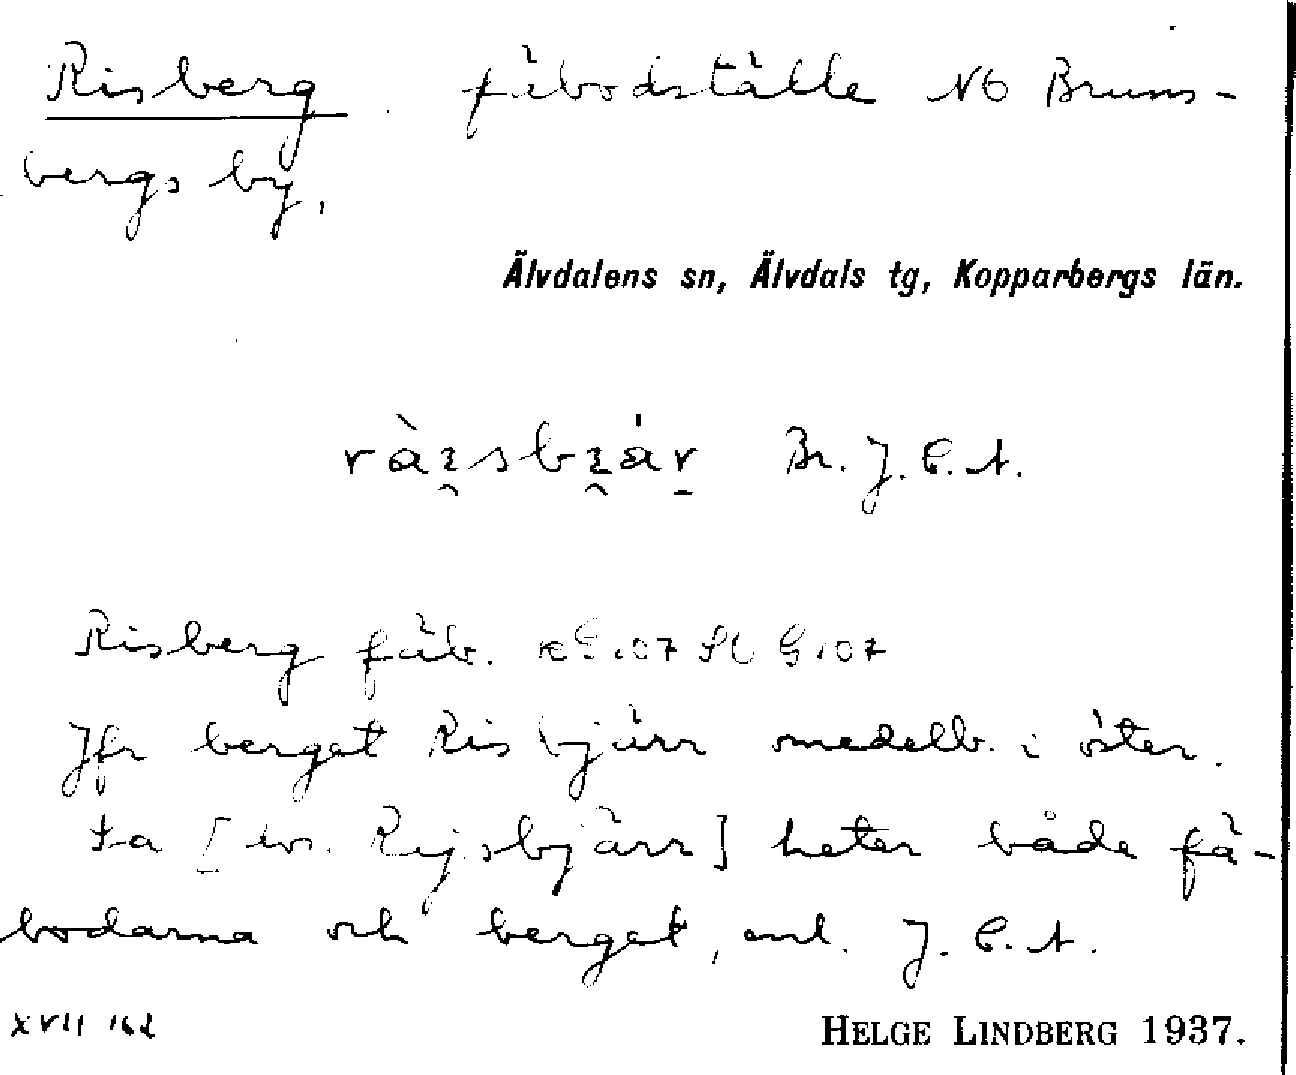 Risberg . fäbodställe NO Bruns-
bergs by.
Älvdalens sn, Älvdals tg, Kopparbergs län.
Br. J. E. A.
Risberg fäb. KG 107 St G 107
Jfr berget Risbjärr medelb. i öster.
Sa [ ] heter både fä-
bodarna och berget, enl. J. E. A.
XVII 162
HELGE LINDBERG 1937.